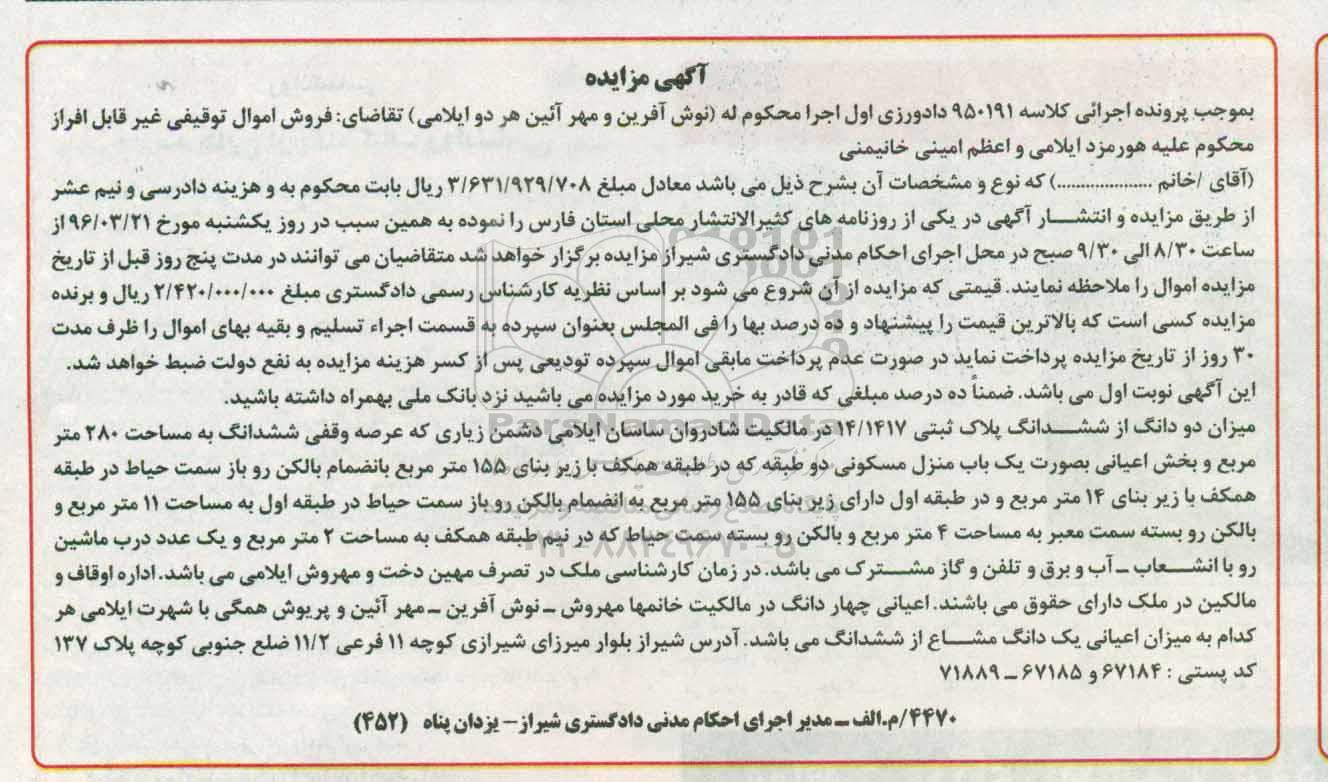 آگهی مزایده
بموجب پرونده اجرائی کلاسه ۹۵۰۱۹۱ دادورزی اول اجرا محکوم له (نوش آفرین و مهر آئین هر دو ایلامی) تقاضای: فروش اموال توقیفی غیر قابل افراز
محکوم علیه هورمزد ایلامی و اعظم امینی خانیمنی
(آقای /خانم ....................) که نوع و مشخصات آن بشرح ذیل می باشد معادل مبلغ ۳/۶۳۱/۹۲۹/۷۰۸ ریال بابت محکوم به و هزینه دادرسی و نیم عشر
از طریق مزایده و انتشار آگهی در یکی از روزنامه های کثیرالانتشار محلی استان فارس را نموده به همین سبب در روز یکشنبه مورخ ۹۶/۰۳/۲۱ از
ساعت ۸/۳۰ الی ۹/۳۰ صبح در محل اجرای احکام مدنی دادگستری شیراز مزایده برگزار خواهد شد متقاضیان می توانند در مدت پنج روز قبل از تاریخ
مزایده اموال را ملاحظه نمایند. قیمتی که مزایده از آن شروع می شود بر اساس نظریه کارشناس رسمی دادگستری مبلغ ۲/۴۲۰/۰۰۰/۰۰۰ ریال و برنده
مزایده کسی است که بالاترین قیمت را پیشنهاد و ده درصد بها را فی المجلس بعنوان سپرده به قسمت اجراء تسلیم و بقیه بهای اموال را ظرف مدت
۳۰ روز از تاریخ مزایده پرداخت نماید در صورت عدم پرداخت مابقی اموال سپرده تودیعی پس از کسر هزینه مزایده به نفع دولت ضبط خواهد شد.
این آگهی نوبت اول می باشد. ضمناً ده درصد مبلغی که قادر به خرید مورد مزایده می باشید نزد بانک ملی بهمراه داشته باشید.
میزان دو دانگ از ششدانگ پلاک ثبتی ۱۴/۱۴۱۷ در مالکیت شادروان ساسان ایلامی دشمن زیاری که عرصه وقفی ششدانگ به مساحت ۲۸۰ متر
مربع و بخش اعیانی بصورت یک باب منزل مسکونی دو طبقه که در طبقه همکف با زیر بنای ۱۵۵ متر مربع بانضمام بالکن رو باز سمت حیاط در طبقه
همکف با زیر بنای ۱۴ متر مربع و در طبقه اول دارای زیر بنای ۱۵۵ متر مربع به انضمام بالکن رو باز سمت حیاط در طبقه اول به مساحت ۱۱ متر مربع و
بالکن رو بسته سمت معبر به مساحت ۴ متر مربع و بالکن رو بسته سمت حیاط که در نیم طبقه همکف به مساحت ۲ متر مربع و یک عدد درب ماشین
رو با انشعاب ـ آب و برق و تلفن و گاز مشترک می باشد. در زمان کارشناسی ملک در تصرف مهین دخت و مهروش ایلامی می باشد. اداره اوقاف و
مالکین در ملک دارای حقوق می باشند. اعیانی چهار دانگ در مالکیت خانمها مهروش ـ نوش آفرین ـ مهر آئین و پریوش همگی با شهرت ایلامی هر
کدام به میزان اعیانی یک دانگ مشاع از ششدانگ می باشد. آدرس شیراز بلوار میرزای شیرازی کوچه ۱۱ فرعی ۱۱/۲ ضلع جنوبی کوچه پلاک ۱۳۷
کد پستی : ۶۷۱۸۴ و ۶۷۱۸۵ ـ ۷۱۸۸۹
۴۴۷۰/م.الف ـ مدیر اجرای احکام مدنی دادگستری شیراز – یزدان پناه (۴۵۲)
ParsNamadData